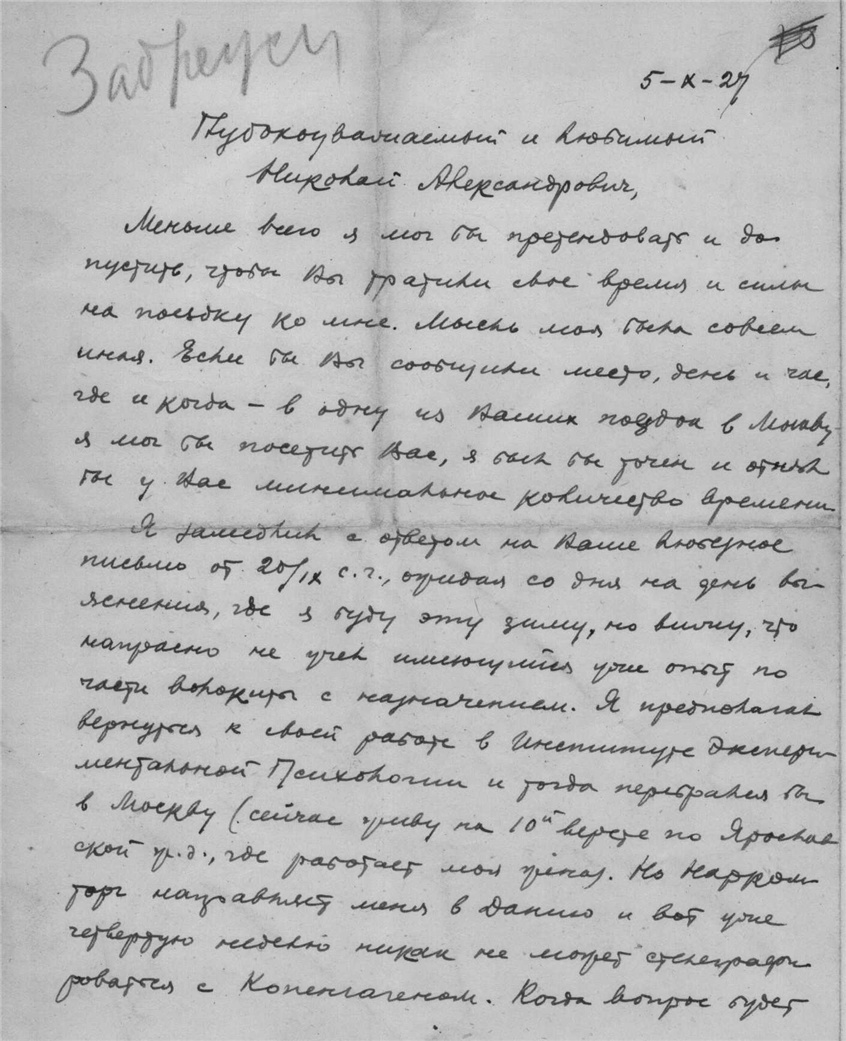 5-X-27
Глубокоуважаемый и любимый
Николай Александрович,
Меньше всего я мог бы претендовать и до-
пустить, чтобы Вы тратили свое время и силы
на поездку ко мне. Мысль моя была совсем
иная. Если бы Вы сообщили место, день и час,
где и когда – в одну из Ваших поездок в Москву
я мог бы посетить Вас, я был бы точен и отнял
бы у Вас минимальное количество времени
Я замедлил с ответом на Ваше любезное
письмо от 20/IX с.г., ожидая со дня на день вы-
яснения, где я буду эту зиму, но вижу, что
напрасно не учел имеющийся уже опыт по
части волокиты с назначением. Я предполагал
вернуться к своей работе в Институте Экспери-
ментальной Психологии и тогда перебрался бы
в Москву (сейчас живу на 10й версте по Ярослав
ской ж.д., где работает моя жена). Но Нарком-
торг направляет меня в Данию и вот уже
четвертую неделю никак не может стелеграфи-
роваться с Копенгагеном. Когда вопрос будет